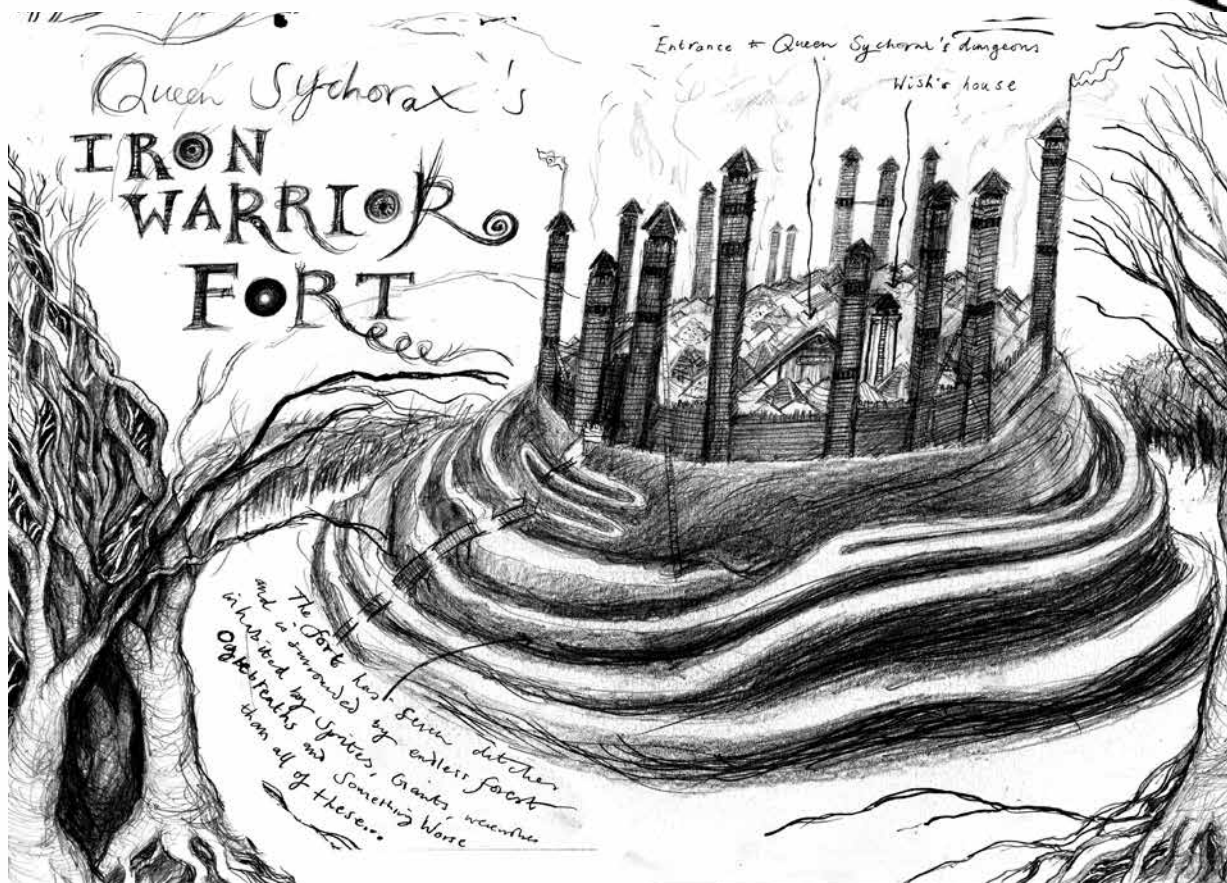 Queen Sychorax's
IRON
WARRIOR
FORT
Entrance to Queen Sychorax's dungeons
Wish's house
The fort has seven ditches
and is surrounded by endless forest
inhabited by Sprites, Giants, werewolves
Ogrebreaths and Something Worse
than all of these...